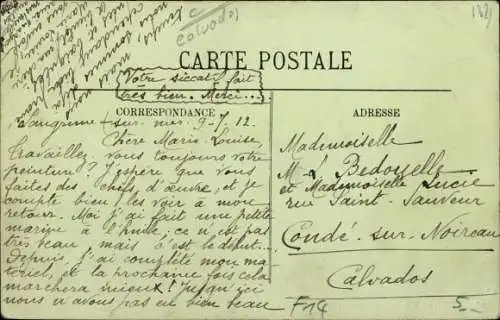 Calvados
CARTE POSTALE
Votre siccatif fait
très bien. Merci...
CORRESPONDANCE
ADRESSE
Langrune-sur-mer 9-7.12.
Chère Marie Louise,
Travaillez vous toujours votre
peinture? J'espère que vous
faites des chefs d'œuvre, et je
compte bien les voir à mon
retour. Moi j'ai fait une petite
marine à l'huile, ce n'est pas
très beau, mais c'est le début...
Depuis, j'ai complété mon ma-
teriel, et la prochaine fois cela
marchera mieux! Jusqu'ici
nous n'avons pas eu bien beau
Mademoiselle
M. L. Bedouelle
et Mademoiselle Lucie
rue Saint-Sauveur
Condé-sur-Noireau
Calvados
F14
5-